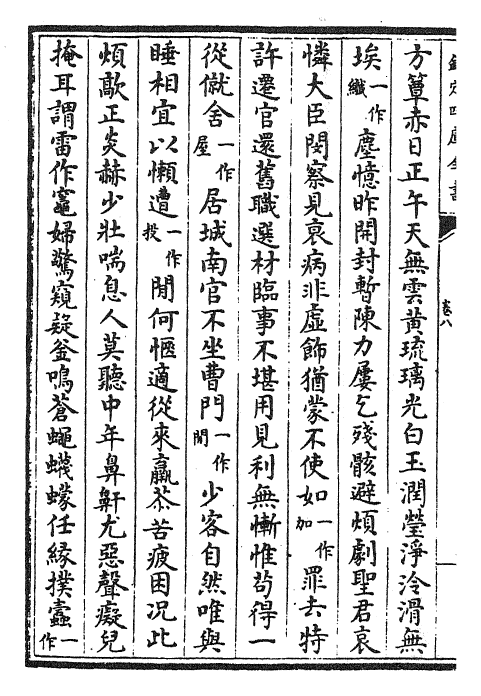 欽定四庫全書
卷八
方簟赤日正午天無雲黃琉璃光白玉潤瑩淨冷滑無
埃一作纎塵憶昨開封暫陳力屢乞殘骸避煩劇聖君哀
憐大臣閔察見衰病非虛飾猶蒙不使如一作加罪去特
許遷官還舊職選材臨事不堪用見利無慚惟苟得一
從僦舍一作屋居城南官不坐曹門一作閒少客自然唯與
睡相宜以懶遭一作投閒何愜適從來羸苶苦疲困況此
煩歊正炎赫少壯喘息人莫聽中年鼻鼾尤惡聲癡兒
掩耳謂雷作竈婦驚窺疑釜鳴蒼蠅蠛蠓任緣撲蠹一作